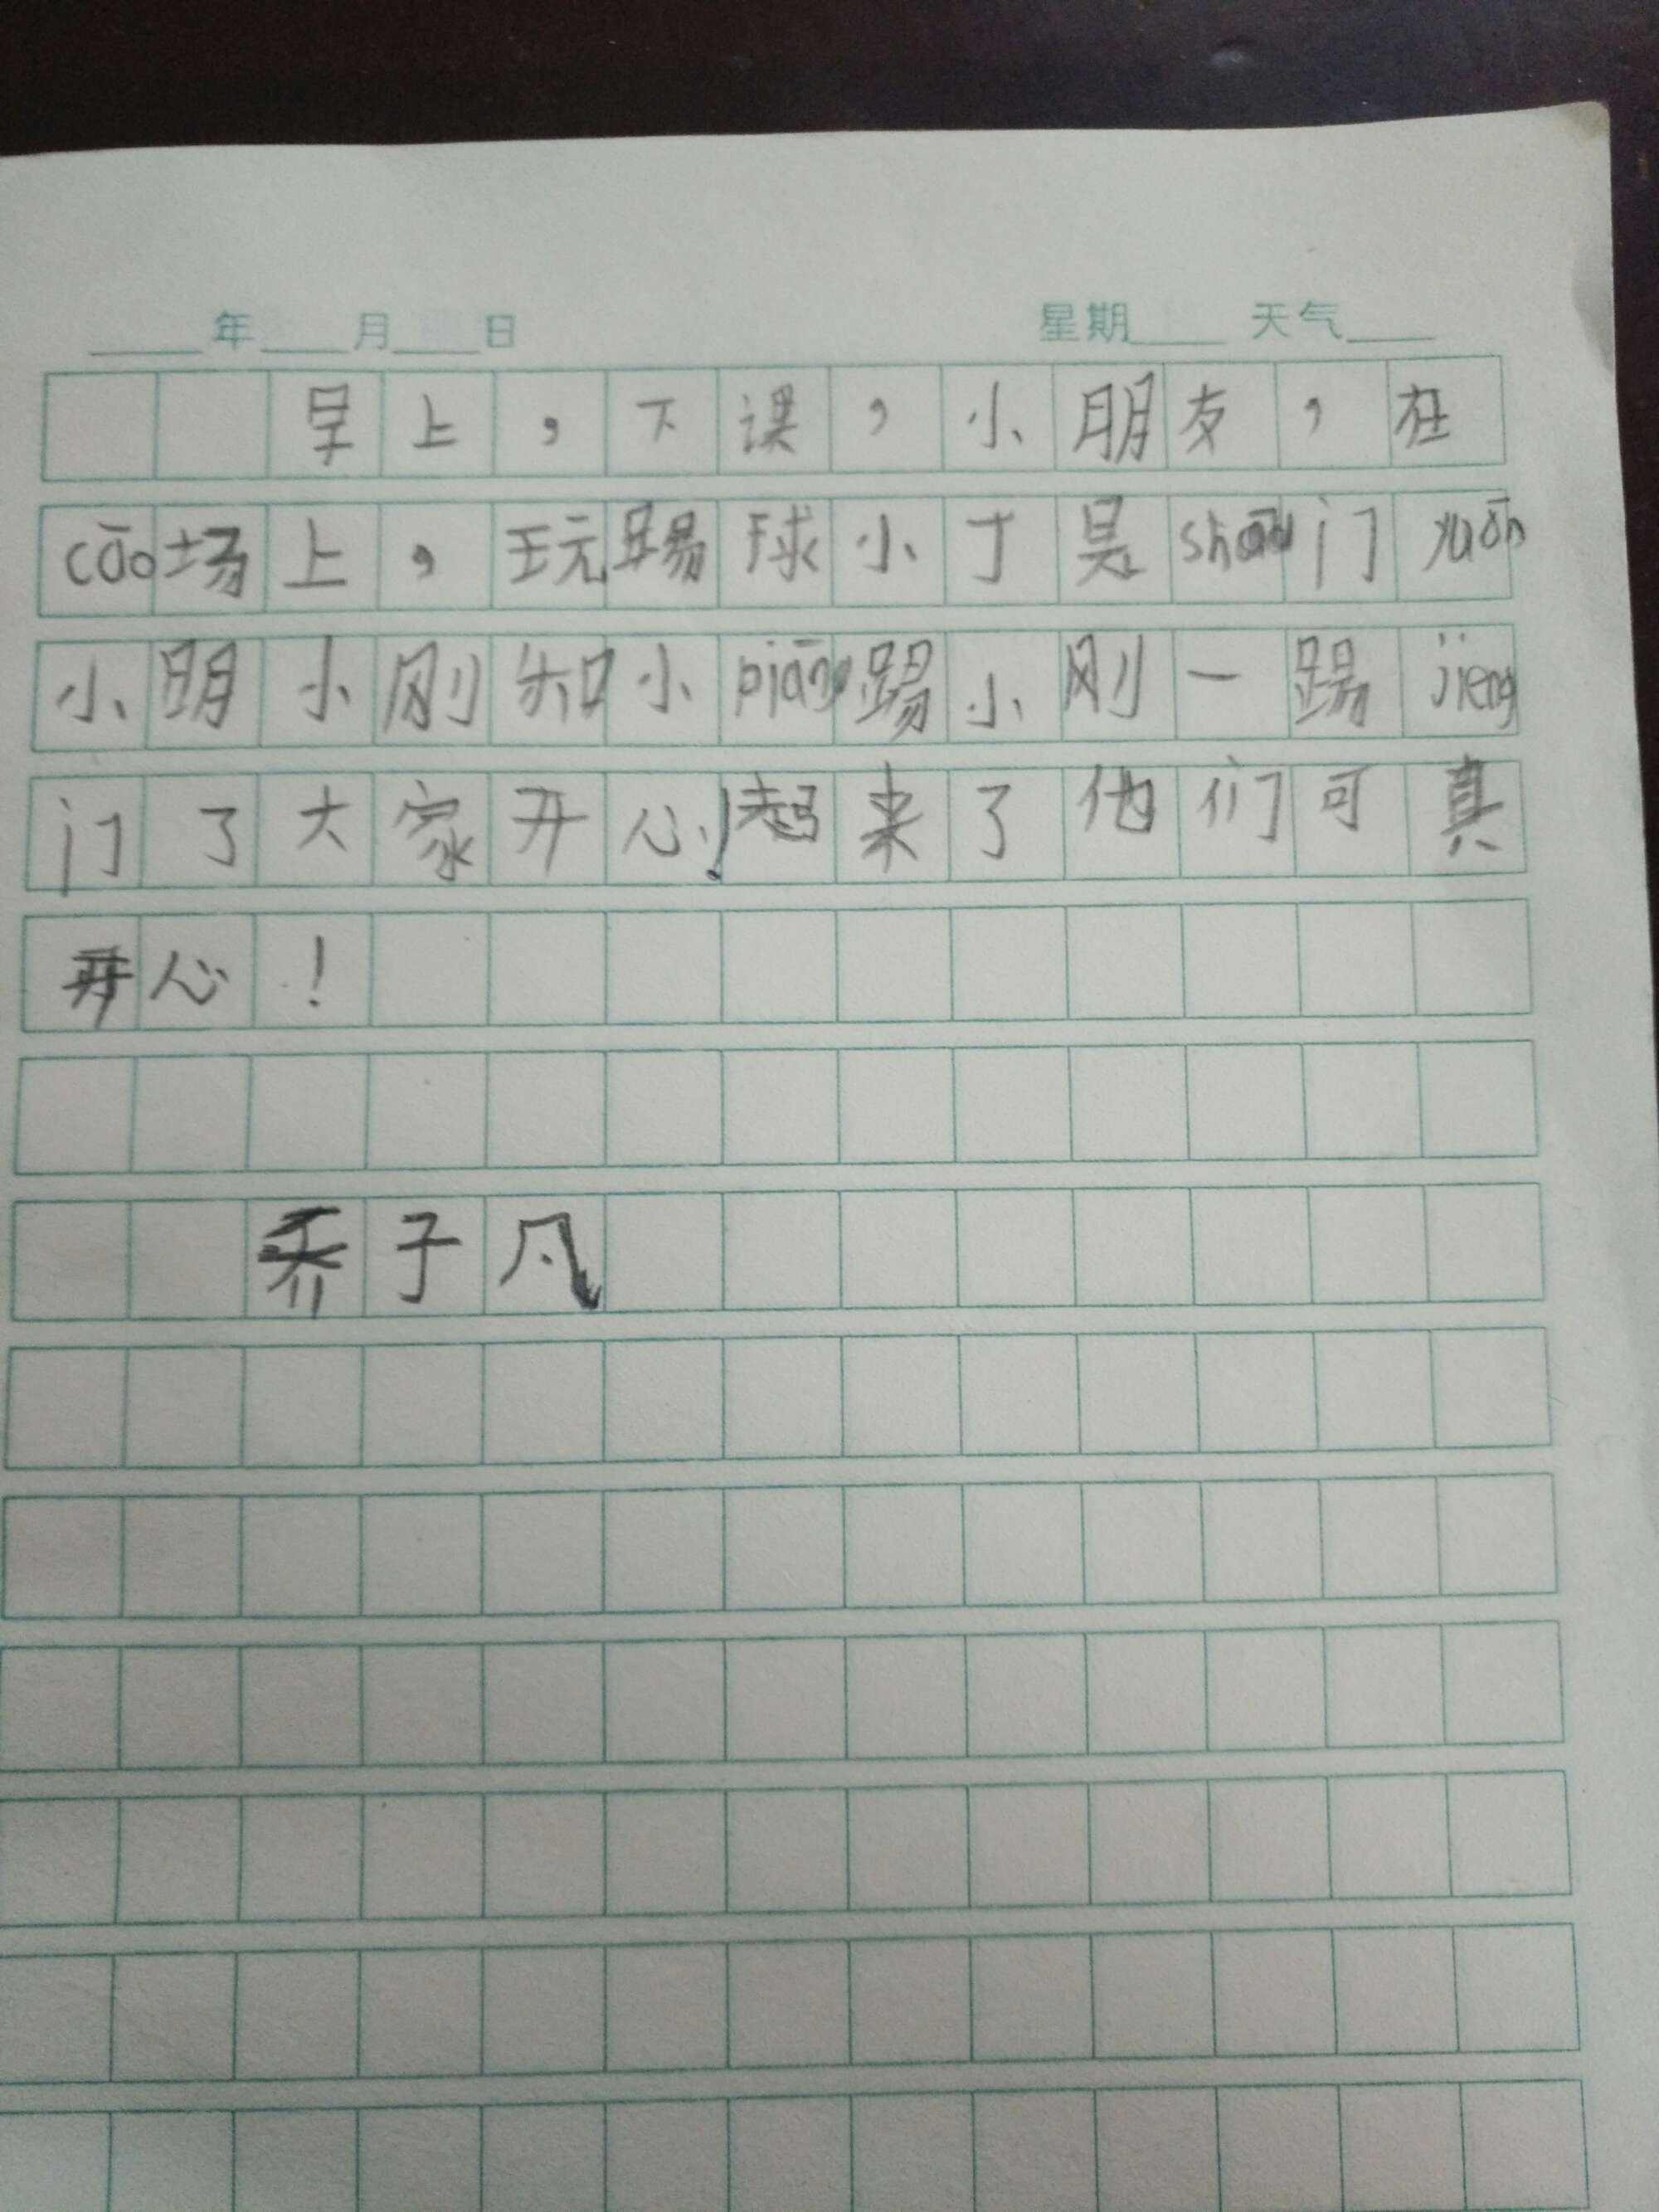 年 月 日 星期 天气
早上，下课，小朋友，在
cāo场上，玩踢球小丁是shǒu门yuán
小明小刚和小 踢小刚一踢jieng
门了大家开心！起来了他们可真
开心！
乔子凡